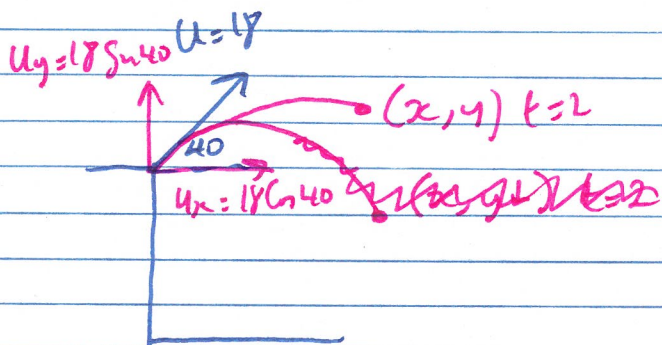 Uy=18 Sin40 U=18
(x,y) t=2
40
Ux=18Cos40